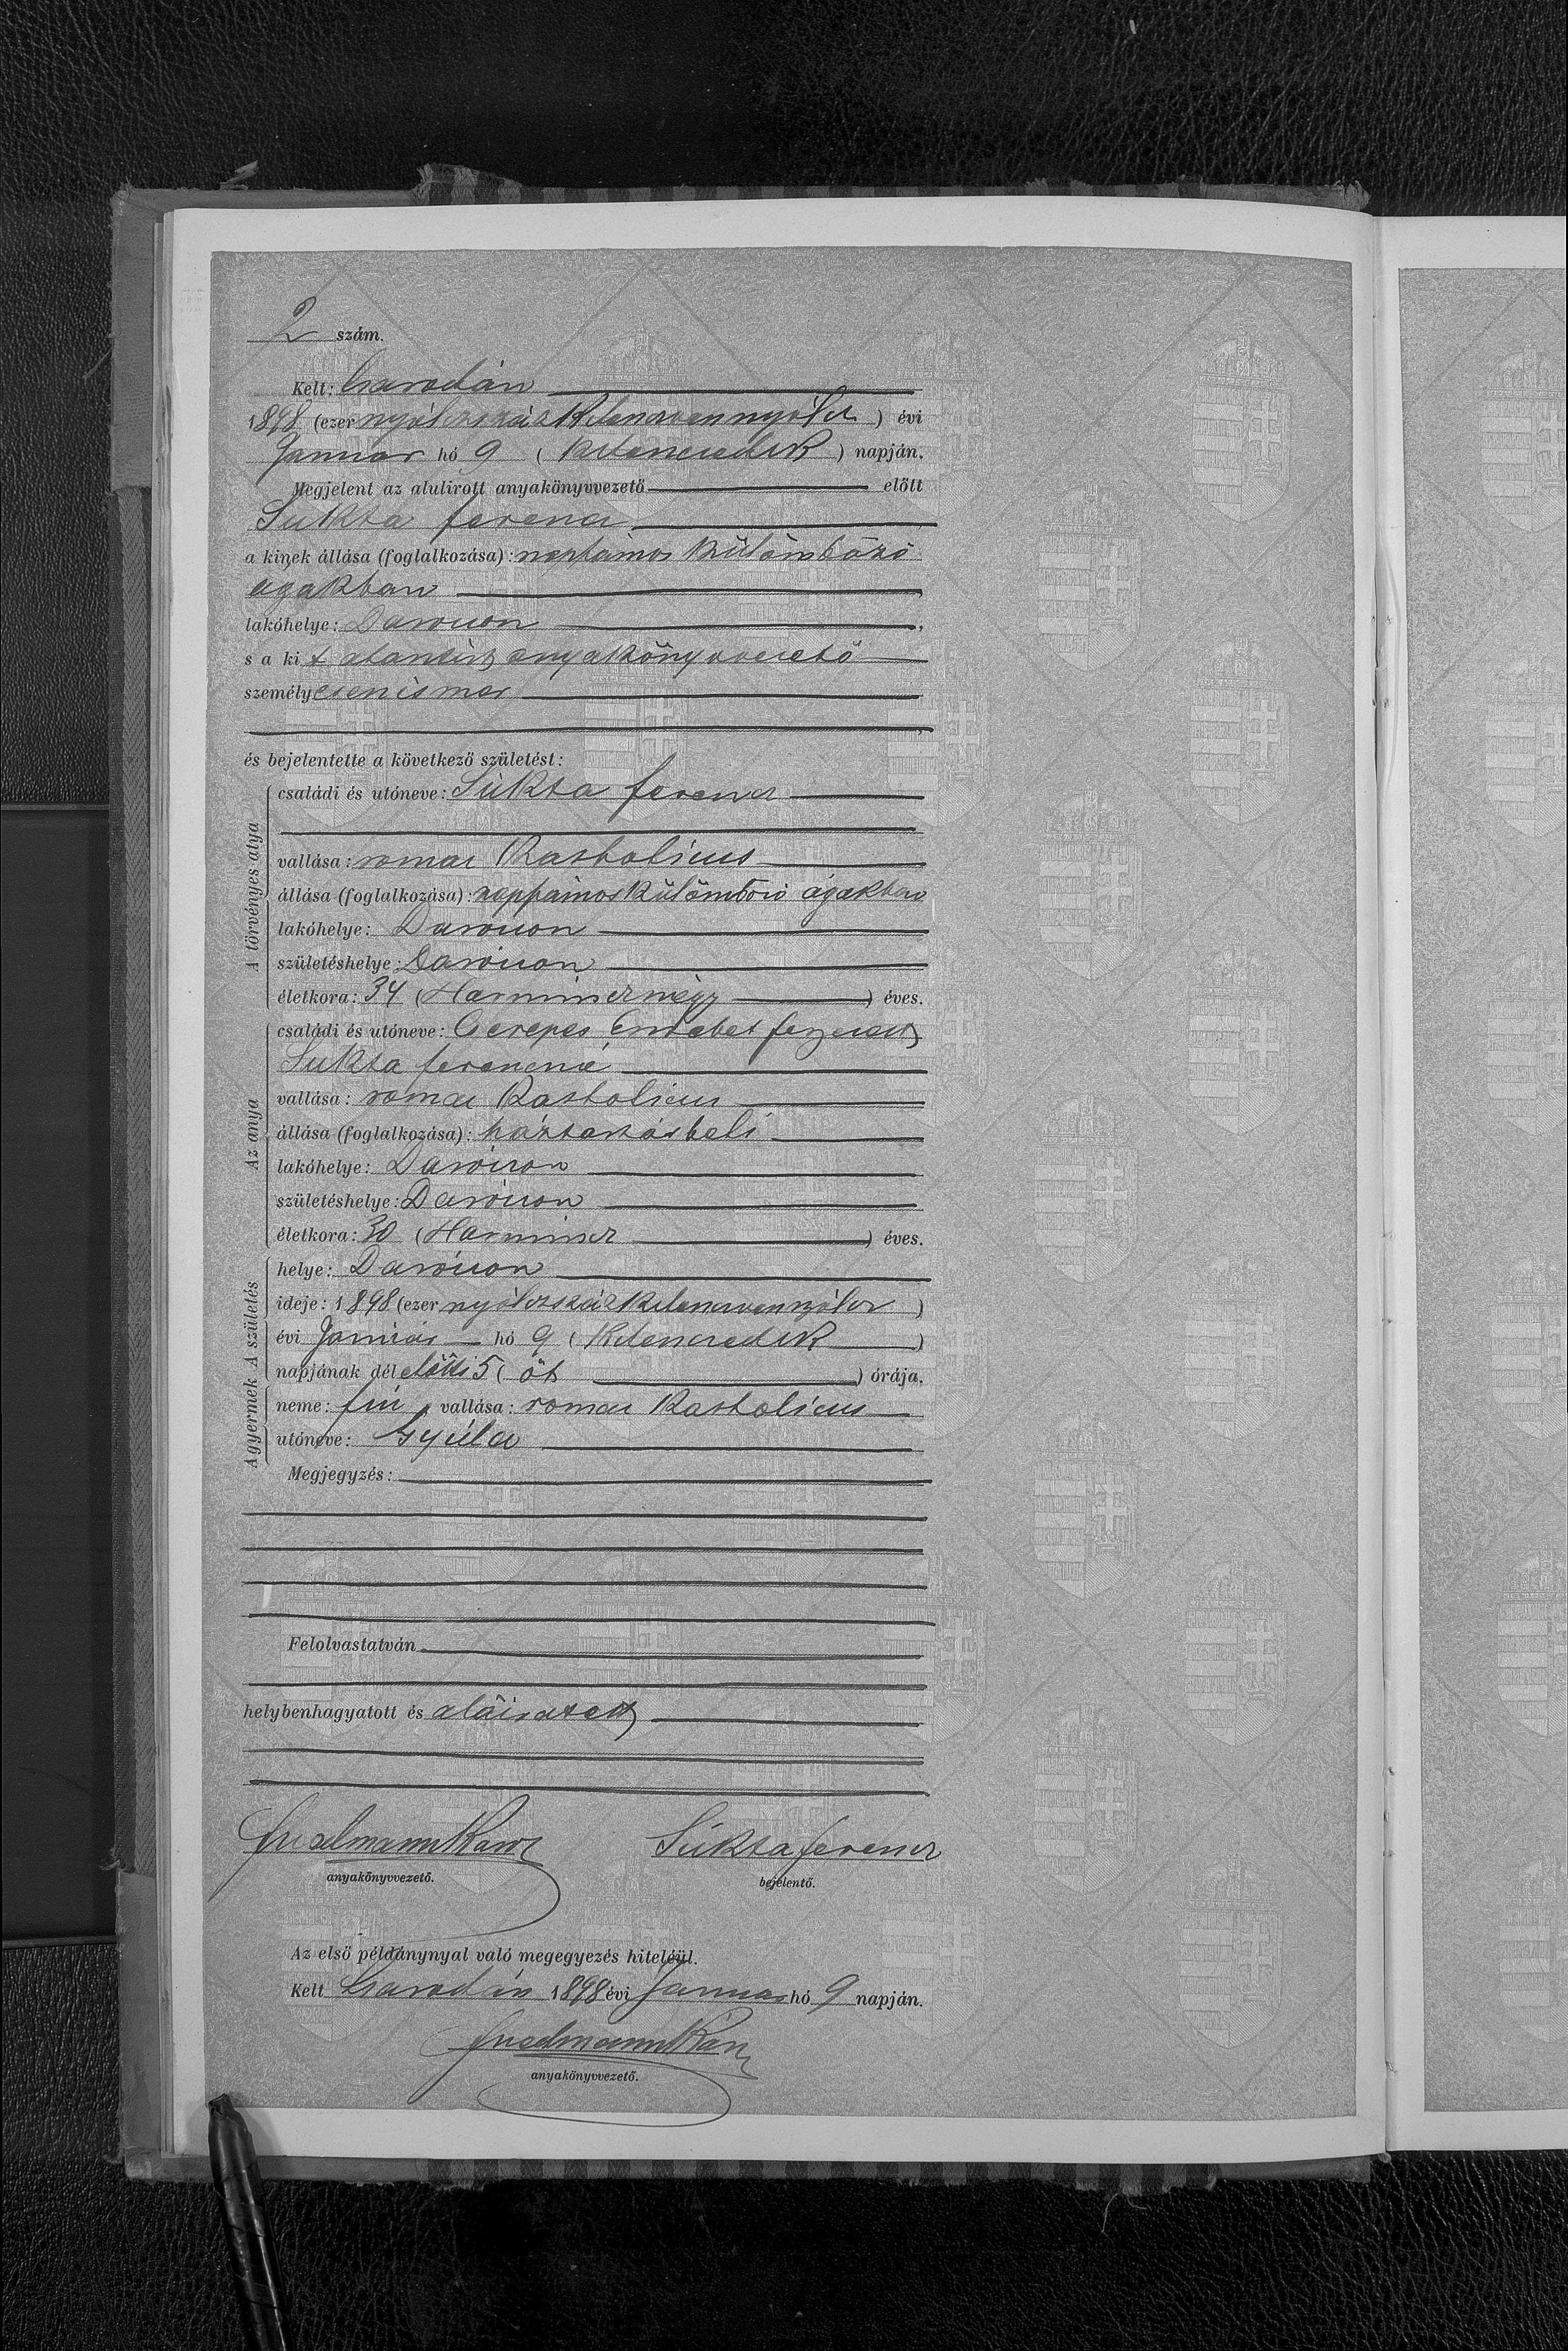 2 szám.
Kelt: Csarodán
1898 (ezer nyólczszáz Kilenczvennyólcz) évi
Januar hó 9 (Kilenczedik) napján.
Megjelent az alulirott anyakönyvvezető előtt
Sukta Ferencz
a kinek állása (foglalkozása): napszámos külömböző
ágakban
lakóhelye:
s a ki t alantirt anyakönyvvezető
személyesen ismer
és bejelentette a következő születést:
A törvényes atya
családi és utóneve: Sukta Ferencz
vallása: romai Katholicus
állása (foglalkozása): napszámos külömböző ágakban
lakóhelye:
születéshelye:
életkora: 34 (Harmincznégy) éves.
Az anya
családi és utóneve: Cserepes Erzsebet
Sukta Ferenczné
vallása: romai Katholicus
állása (foglalkozása): háztartásbeli
lakóhelye:
születéshelye:
életkora: 30 (Harmincz) éves.
A születés
helye:
ideje: 1898 (ezer nyólczszáz Kilenczvennyólcz)
évi Január hó 9 (Kilenczedik)
napjának dél előtti 5 (öt) órája.
A gyermek
neme: fiú, vallása: romai Katholicus
utóneve: Gyúla
Megjegyzés:
Felolvastatván
helybenhagyatott és aláiratott
Sukta Ferencz
anyakönyvvezető. bejelentő.
Az első példánynyal való megegyezés hiteléül.
Kelt Csarodán 1898 évi Januar hó 9 napján.
anyakönyvvezető.